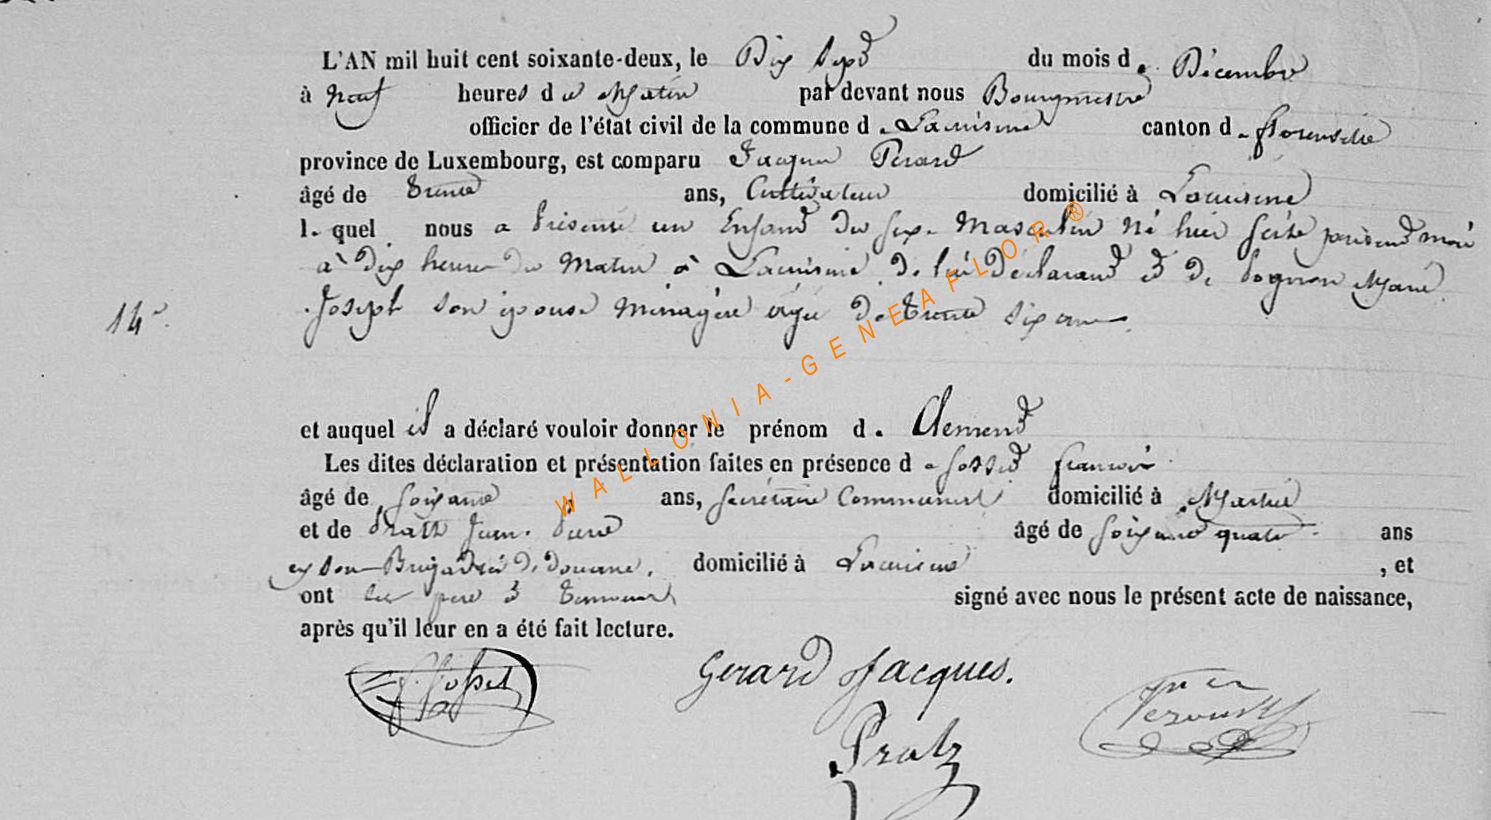 L'AN mil huit cent soixante-deux, le Dix Sept du mois d. Décembre
à Neuf heures du Matin par devant nous Bourgmestre
officier de l'état civil de la commune d. Lacuisine canton d. florenville
province de Luxembourg, est comparu Jacques Gerard
âgé de Trente ans, Cultivateur domicilié à Lacuisine
l. quel nous a Présenté un Enfant du sexe Masculin Né hier seize présent mois
à dix heures du Matin à Lacuisine de lui Déclarant et de Pognon Marie
14e
Joseph son épouse Ménagère âgée de Trente six ans
et auquel il a déclaré vouloir donner le prénom d. Clement
Les dites déclaration et présentation faites en présence d. Josset francois
âgé de soixante ans, secrétaire Communal domicilié à Martué
et de Pratz Jean. Pierre âgé de soixante quatre ans
ex Sous Brigadier de Douane, domicilié à Lacuisine , et
ont les père et Temoins signé avec nous le présent acte de naissance,
après qu'il leur en a été fait lecture.
Gerard Jacques.
f. Josset
Pratz
WALLONIA-GENEAFLOR®